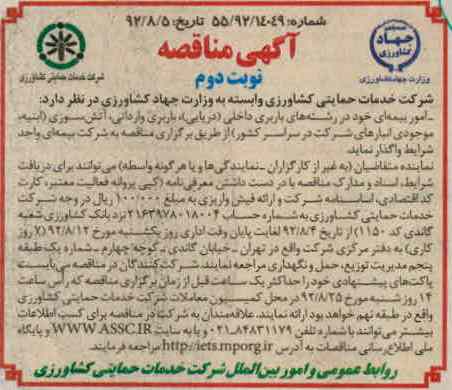 شماره: ۵۵/۹۲/۱۴۰۴۹ تاریخ: ۹۲/۸/۵
آگهی مناقصه
نوبت دوم
جهاد
کشاورزی
وزارت جهاد کشاورزی
شرکت خدمات حمایتی کشاورزی
شرکت خدمات حمایتی کشاورزی وابسته به وزارت جهاد کشاورزی در نظر دارد:
ـ امور بیمه‌ای خود در رشته‌های باربری داخلی (دریایی)، باربری وارداتی، آتش‌سوزی (ابنیه،
موجودی انبارهای شرکت در سراسر کشور) از طریق برگزاری مناقصه به شرکت بیمه‌ای واجد
شرایط واگذار نماید.
نماینده متقاضیان (به غیر از کارگزاران ـ نمایندگی‌ها و یا هرگونه واسطه) می‌توانند برای دریافت
شرایط، اسناد و مدارک مناقصه با در دست داشتن معرفی‌نامه (کپی پروانه فعالیت معتبر، کارت
کد اقتصادی، اساسنامه شرکت و ارائه فیش واریزی به مبلغ ۱۰۰/۰۰۰ ریال در وجه شرکت
خدمات حمایتی کشاورزی به شماره حساب ۲۱۶۳۹۷۸۰۱۸۰۰۴ نزد بانک کشاورزی شعبه
گاندی کد ۱۱۵۰) از تاریخ ۹۲/۸/۴ لغایت پایان وقت اداری روز یکشنبه مورخ ۹۲/۸/۱۲ (۷ روز
کاری) به دفتر مرکزی شرکت واقع در تهران ـ خیابان گاندی ـ کوچه چهارم ـ شماره یک طبقه
پنجم مدیریت توزیع، حمل و نگهداری مراجعه نمایند. شرکت‌کنندگان در مناقصه می‌بایست
پاکت‌های پیشنهادی خود را حداکثر یک ساعت قبل از زمان برگزاری مناقصه که رأس ساعت
۱۴ روز شنبه مورخ ۹۲/۸/۲۵ در محل کمیسیون معاملات شرکت خدمات حمایتی کشاورزی
واقع در طبقه نهم خواهد بود ارائه نمایند. علاقه‌مندان به شرکت در مناقصه برای کسب اطلاعات
بیشتر می‌توانند با شماره تلفن ۸۴۸۳۱۱۷۹ـ۰۲۱ و یا به سایت WWW.ASSC.IR و پایگاه
ملی اطلاع‌رسانی مناقصات به آدرس http://iets.mporg.ir مراجعه فرمایند.
روابط عمومی و امور بین‌الملل شرکت خدمات حمایتی کشاورزی